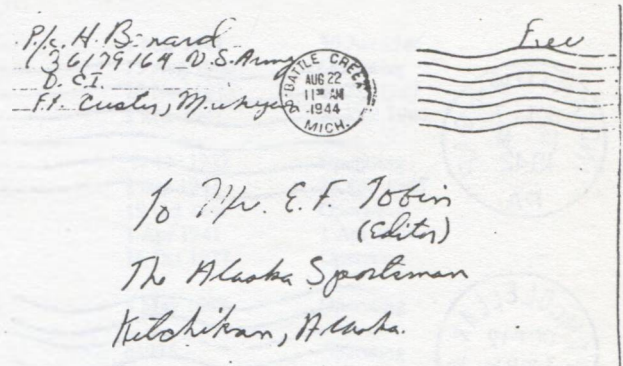 Pfc. H. B
36179164 U.S. Army
Ft. Custer, Michigan
BATTLE CREEK
AUG 22
11 AM
1944
MICH.
Free
To Mr. E. F. Tobin
(Editor)
The Alaska Sportsman
Ketchikan, Alaska.